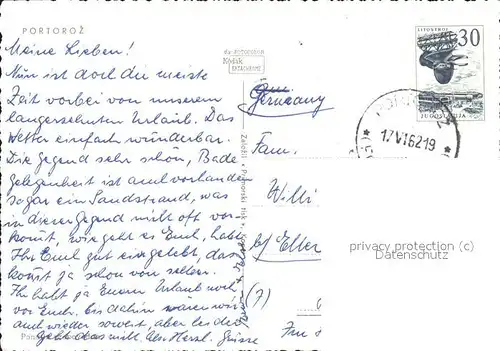 PORTOROŽ
Meine Lieben!
Nun ist doch die meiste
Zeit vorbei von unserem
langersehnten Urlaub. Das
Wetter einfach wunderbar.
Die Gegend sehr schön, Bade
gelegenheit ist auch vorhanden
sogar ein Sandstrand, was
in dieser Gegend nicht oft vor-
kommt, wie geht es Euch, habt
Ihr Euch gut eingelebt, das
kommt ja schon von selber.
Ihr habt ja Euern Urlaub noch
vor Euch. bis dahin wären wir
auch wieder soweit, aber bis dort
geht das nicht. Also Herzl. Grüsse
Kodak
LITOSTROJ
30
JUGOSLAVIJA
17VI6219
Germany
Fam.
Willi
b/ Elter
(7)
privacy protection (c)
Datenschutz